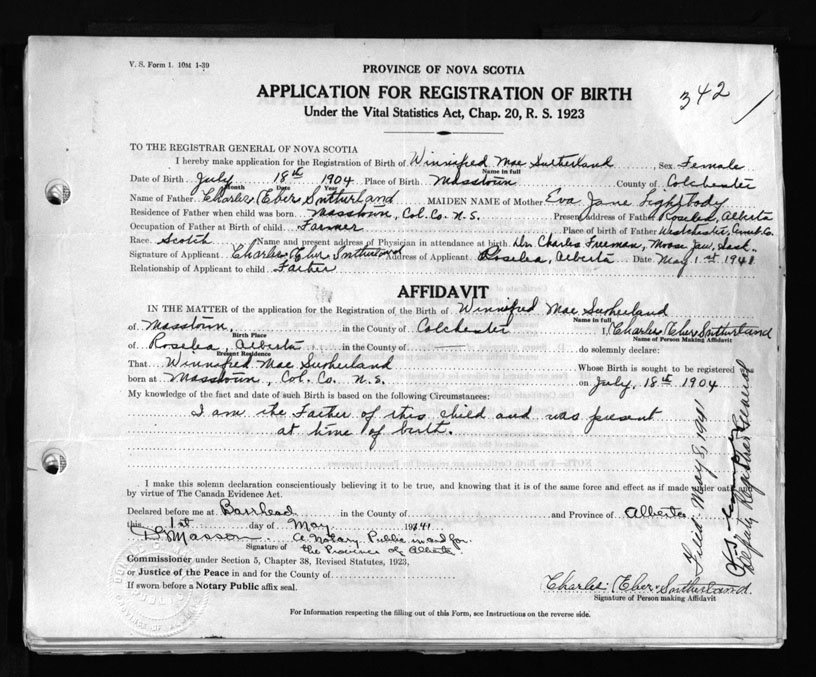 V. S. Form 1. 10M 1-39
PROVINCE OF NOVA SCOTIA
APPLICATION FOR REGISTRATION OF BIRTH
Under the Vital Statistics Act, Chap. 20, R. S. 1923
342
TO THE REGISTRAR GENERAL OF NOVA SCOTIA
I hereby make application for the Registration of Birth of Winnifred Mae Sutherland Sex Female
Name in full
Date of Birth July 18th 1904 Place of Birth Masstown County of Colchester
Month Date Year
Name of Father Charles Eber Sutherland MAIDEN NAME of Mother Eva Jane Lightbody
Residence of Father when child was born Masstown, Col. Co. N. S. Present address of Father Roselea, Alberta
Occupation of Father at Birth of child Farmer Place of birth of Father Westchester, Cumb. Co.
Race Scotch Name and present address of Physician in attendance at birth Dr. Charles Freeman, Moose Jaw, Sask.
Signature of Applicant Charles Eber Sutherland Address of Applicant Roselea, Alberta Date May 1st 1941
Relationship of Applicant to child Father
AFFIDAVIT
IN THE MATTER of the application for the Registration of the Birth of Winnifred Mae Sutherland
Name in full
of Masstown, in the County of Colchester I, Charles Eber Sutherland
Birth Place Name of Person Making Affidavit
of Roselea, Alberta in the County of do solemnly declare:
Present Residence
That Winnifred Mae Sutherland Whose Birth is sought to be registered
born at Masstown, Col. Co. N. S. on July, 18th 1904
My knowledge of the fact and date of such Birth is based on the following Circumstances:
I am the Father of this child and was present
at time of birth.
I make this solemn declaration conscientiously believing it to be true, and knowing that it is of the same force and effect as if made under oath and
by virtue of The Canada Evidence Act.
Declared before me at Barrhead in the County of and Province of Alberta
this 1st day of May 1941
D. Masson a Notary Public in and for
Signature of the Province of Alberta
Commissioner under Section 5, Chapter 38, Revised Statutes, 1923,
or Justice of the Peace in and for the County of
If sworn before a Notary Public affix seal.
Charles Eber Sutherland.
Signature of Person making Affidavit
For Information respecting the filling out of this Form, see Instructions on the reverse side.
Filed May 8, 1941
Deputy Registrar General